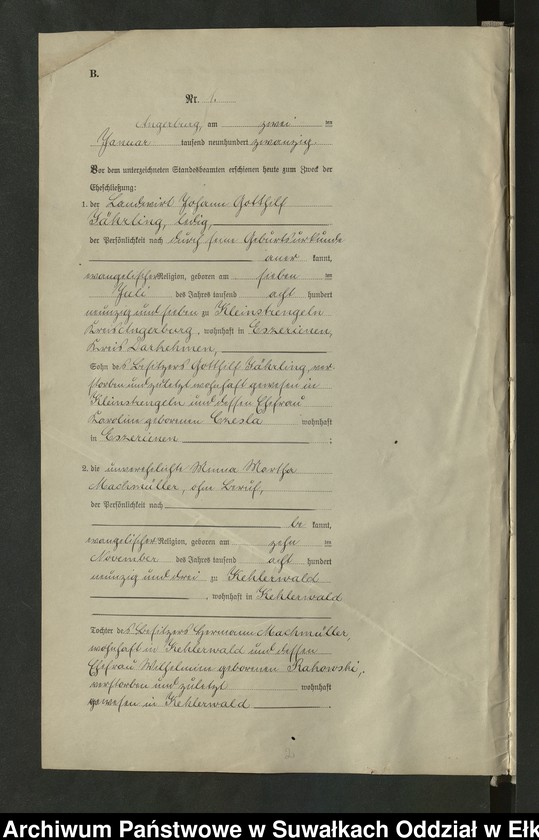 B.
Nr. 1.
Angerburg, am zwei ten
Januar tausend neunhundert zwanzig
Vor dem unterzeichneten Standesbeamten erschienen heute zum Zweck der
Eheschließung:
1. der Landwirt Johann Gotthilf
Jährling, ledig,
der Persönlichkeit nach durch seine Geburtsurkunde
aner kannt,
evangelischer Religion, geboren am sieben ten
Juli des Jahres tausend acht hundert
neunzig und sieben zu Kleinstrengeln
Kreis Angerburg, wohnhaft in Eszerienen,
Kreis Darkehmen,
Sohn des Besitzers Gotthilf Jährling, ver-
storben und zuletzt wohnhaft gewesen in
Kleinstrengeln und dessen Ehefrau
Karoline geborenen Czesla wohnhaft
in Eszerienen ;
2. die unverehelichte Minna Martha
Machmüller, ohne Beruf,
der Persönlichkeit nach
be kannt,
evangelischer Religion, geboren am zehn ten
November des Jahres tausend acht hundert
neunzig und drei zu Kehlerwald
, wohnhaft in Kehlerwald
Tochter des Besitzers Hermann Machmüller,
wohnhaft in Kehlerwald und dessen
Ehefrau Wilhelmine geborenen Rakowski,
verstorben und zuletzt wohnhaft
gewesen in Kehlerwald .
Archiwum Państwowe w Suwałkach Oddział w Ełk